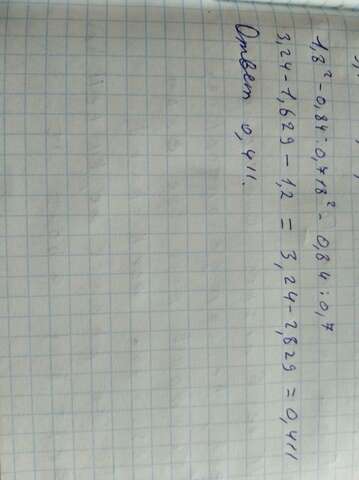 1,8² - 0,84 : 0,718² - 0,84 : 0,7
3,24 - 1,629 - 1,2 = 3,24 - 2,829 = 0,411
Ответ 0,411.